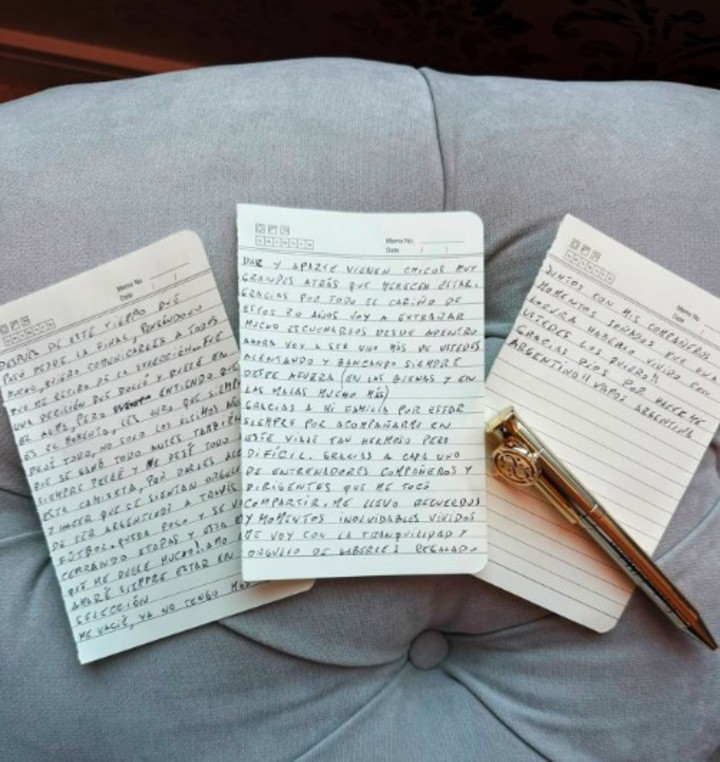 Memo No.
Date / /
DESPUES DE ESTE TIEMPO QUE
PASO DESDE LA FINAL,
QUIERO COMUNICARLES A TODOS
QUE ME RETIRO DE LA SELECCIÓN. FUE
UNA DECISIÓN QUE DOLIÓ Y DUELE EN
EL ALMA, PERO ENTIENDO QUE
ES EL MOMENTO, LES JURO QUE SIEMPRE
DEJÉ TODO, NO SOLO LOS ULTIMOS AÑOS
QUE SE GANÓ TODO ANTES TAMBIÉN
SIEMPRE PELEÉ Y ME DEJÉ TODO
ESTA CAMISETA, POR DARLES
Y HACER QUE SE SIENTAN
DE SER ARGENTINOS A TRAVÉS
FUTBOL. QUEDA POCO Y SE VAN
CERRANDO ETAPAS Y ESTA ES
QUE ME DUELE MUCHO. AMO
AMARÉ SIEMPRE ESTAR EN
SELECCIÓN
ME VACIÉ, YA NO TENGO
Memo No.
Date / /
DAR Y APARTE VIENEN CHICOS MUY
GRANDES ATRÁS QUE MERECEN ESTAR.
GRACIAS POR TODO EL CARIÑO DE
ESTOS 20 AÑOS VOY A EXTRAÑAR
MUCHO ESCUCHARLOS DESDE ADENTRO
AHORA VOY A SER UNO MÁS DE USTEDES
ALENTANDO Y BANCANDO SIEMPRE
DESDE AFUERA (EN LAS BUENAS Y EN
LAS MALAS MUCHO MÁS)
GRACIAS A MI FAMILIA POR ESTAR
SIEMPRE POR ACOMPAÑARME EN
ESTE VIAJE TAN HERMOSO PERO
DIFÍCIL. GRACIAS A CADA UNO
DE ENTRENADORES COMPAÑEROS Y
DIRIGENTES QUE ME TOCÓ
COMPARTIR. ME LLEVO RECUERDOS
Y MOMENTOS INOLVIDABLES VIVIDOS
ME VOY CON LA TRANQUILIDAD Y
ORGULLO DE HABERLES REGALADO
Memo No.
Date
JUNTOS CON MIS COMPAÑEROS
MOMENTOS SOÑADOS FUE UNA
LOCURA HABERLO VIVIDO CON
USTEDES LOS QUIERO!!
GRACIAS DIOS POR HACERME
ARGENTINO!! VAMOS ARGENTINA